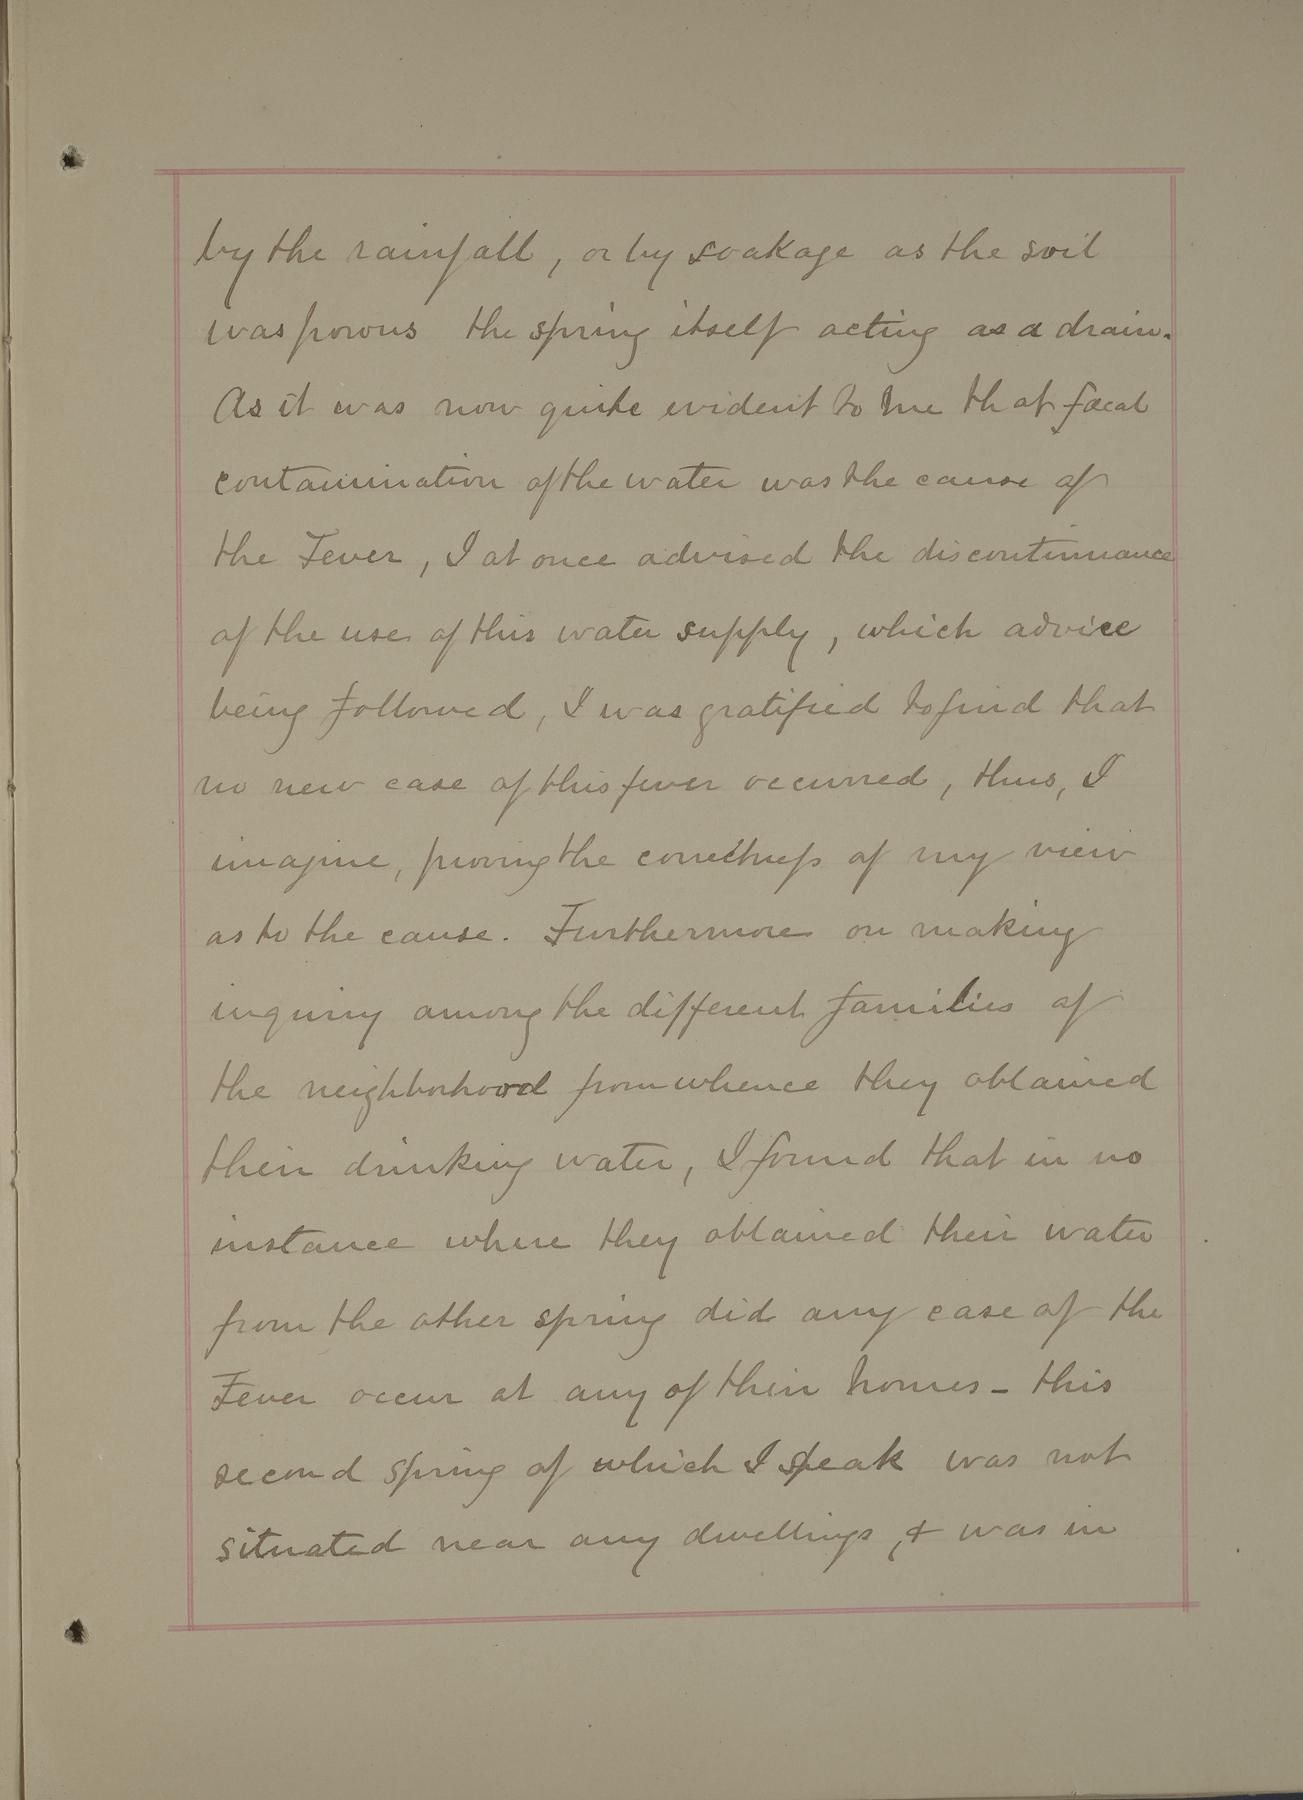 by the rainfall, or by soakage as the soil
was porous the spring itself acting as a drain.
As it was now quite evident to me that fæcal
contamination of the water was the cause of
the Fever, I at once advised the discontinuance
of the use of this water supply, which advice
being followed, I was gratified to find that
no new case of this fever occurred, thus, I
imagine, proving the correctness of my view
as to the cause. Furthermore on making
inquiry among the different families of
the neighborhood from whence they obtained
their drinking water, I found that in no
instance where they obtained their water
from the other spring did any case of the
Fever occur at any of their homes - this
second spring of which I speak was not
situated near any dwellings, & was in